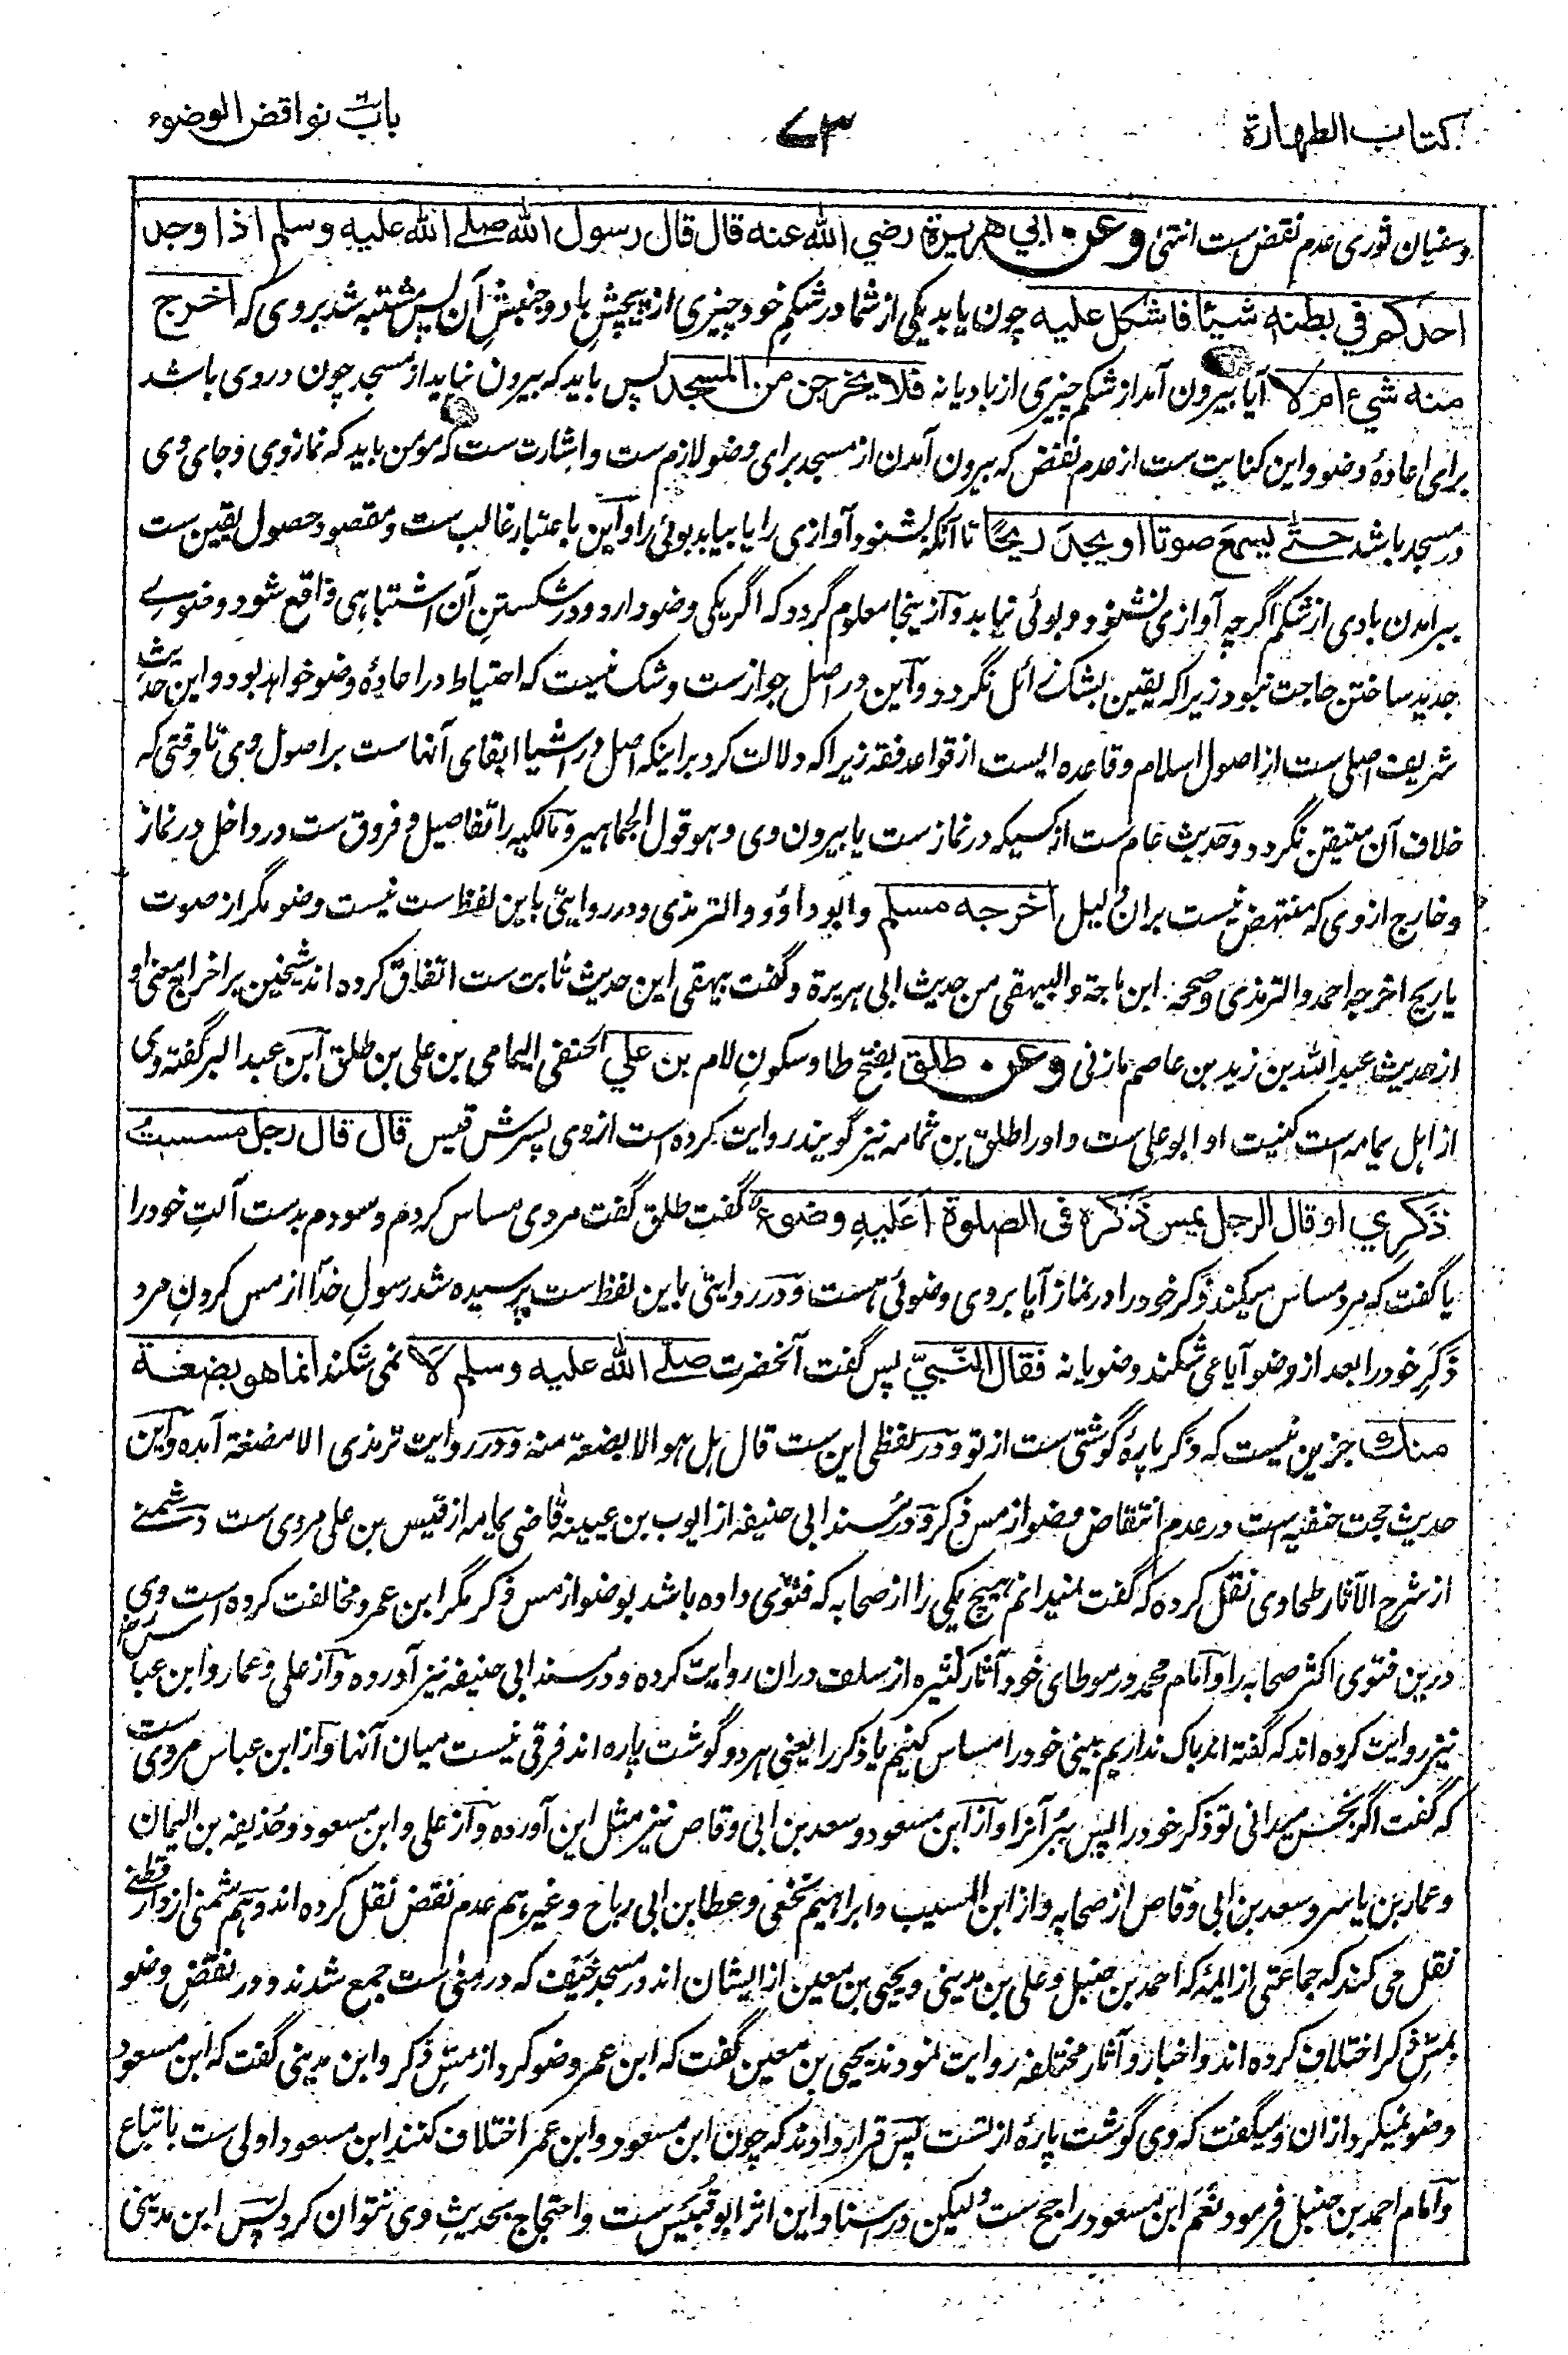 كتاب الطهارة
۷۳
باب نواقض الوضوء
و سفیان ثوری عدم نقض ست انتهی وعن ابي هريرة رضي الله عنه قال قال رسول الله صلے الله عليه وسلم اذا وجد
احدكم في بطنه شيئا فاشكل عليه چون یابد یکی از شما در شکم خود چیزی از پیچش باد و جنبش آن پس مشتبه شد بروی که اخرج
منه شيء ام لا آیا بیرون آمد از شکم چیزی از باد یا نه فلا يخرجن من المسجد پس باید که بیرون نیاید از مسجد چون در وی باشد
برای اعادهٔ وضو و این کنایت ست از عدم نقض که بیرون آمدن از مسجد برای وضو لازم ست و اشارت ست که مومن باید که نماز وی و جای وی
در مسجد باشد حتى يسمع صوتا او يجد ريحا تا آنکه بشنود آوازی را یا بیابد بوئی را و این باعتبار غالب ست و مقصود حصول یقین ست
ببرامدن بادی از شکم اگرچه آوازی نشنود و بوئی نیابد و از ینجا معلوم گردد که اگر یکی وضو دارد و در شکستن آن اشتباهی واقع شود وضوے
جدید ساختن حاجت نبود زیرا که یقین بشک زائل نگردد و این در اصل جواز ست و شک نیست که احتیاط در اعادهٔ وضو خواهد بود و این حدیث
شریف اصلی ست از اصول اسلام و قاعده ایست از قواعد فقه زیرا که دلالت کرد بر اینکه اصل در اشیا ابقای آنهاست بر اصول وی تا وقتی که
خلاف آن متیقن نگردد و حدیث عام ست از کسیکه در نماز ست یا بیرون وی و هو قول الجماهیر و مالکیه را تفاصیل و فروق ست در داخل در نماز
و خارج از وی که منتهض نیست بران دلیل اخرجه مسلم و ابو داؤد و الترمذی و در روایتی باین لفظ ست نیست وضو مگر از صوت
یا ریح اخرجه احمد و الترمذی و صححه ابن ماجة و البیهقی من حدیث ابی هریرة و گفت بیهقی این حدیث ثابت ست اتفاق کرده اند شیخین بر اخراج معنی او
از حدیث عبد الله بن زید بن عاصم مازنی وعن طلق بفتح طا و سکون لام بن علي الحنفی الیمامی بن علی بن طلق ابن عبد البر گفته وی
از اهل یمامه است کنیت او ابو علی ست و او را طلق بن ثمامه نیز گویند روایت کرده است از وی پسرش قیس قال قال رجل مسست
ذكري او قال الرجل يمس ذكره فى الصلوة اعليه وضوء گفت طلق گفت مردی مساس کردم و سودم بدست آلت خود را
یا گفت که مرد مساس میکند ذکر خود را در نماز آیا بروی وضوئی هست و در روایتی باین لفظ ست پرسیده شد رسول خدا از مس کردن مرد
ذکر خود را بعد از وضو آیا می شکند وضو یا نه فقال النبي پس گفت آنحضرت صلے الله عليه وسلم لا نمی شکند انما هو بضعة
منك جز این نیست که ذکر پارهٔ گوشتی ست از تو و در لفظی این ست قال هل هو الا بضعة منه و در روایت ترمذی الا مضغة آمده و این
حدیث حجت حنفیه است در عدم انتقاض وضو از مس ذکر و در مسند ابی حنیفه از ایوب بن عیینه قاضی یمامه از قیس بن علی مروی ست و شمنے
از شرح الآثار طحاوی نقل کرده که گفت نمیدانم هیچ یکی را از صحابه که فتوی داده باشد بوضو از مس ذکر مگر ابن عمر و مخالفت کرده است وی
درین فتوی اکثر صحابه را و امام محمد در موطای خود آثار کثیره از سلف دران روایت کرده و در مسند ابی حنیفه نیز آورده و از علی و عمار و ابن عباس رض
نیز روایت کرده اند که گفته اند باک نداریم بینی خود را مساس کنیم یا ذکر را یعنی هر دو گوشت پاره اند فرقی نیست میان آنها و از ابن عباس مروی ست
که گفت اگر نجس میدانی تو ذکر خود را پس ببر آنرا و از ابن مسعود و سعد بن ابی وقاص نیز مثل این آورده و از علی و ابن مسعود و حذیفه بن الیمان
و عمار بن یاسر و سعد بن ابی وقاص از صحابه و از ابن المسیب و ابراهیم نخعی و عطا بن ابی رباح و غیرهم عدم نقض نقل کرده اند و هم شمنی از دارقطنے
نقل می کند که جماعتی از ائمه که احمد بن حنبل و علی بن مدینی و یحیی بن معین از ایشان اند در مسجد خیف که در منی ست جمع شدند و در نقض وضو
بمس ذکر اختلاف کرده اند و اخبار و آثار مختلفه روایت نمودند یحیی بن معین گفت که ابن عمر وضو کرد از مس ذکر و ابن مدینی گفت که ابن مسعود
وضو نمیکرد ازان و میگفت که وی گوشت پاره از تست پس قرار دادند که چون ابن مسعود و ابن عمر اختلاف کنند ابن مسعود اولی ست باتباع
و امام احمد بن حنبل فرمود نعم ابن مسعود راجح ست و لیکن در اسناد این اثر ابو قیس ست و احتجاج بحدیث وی نتوان کرد پس ابن مدینی